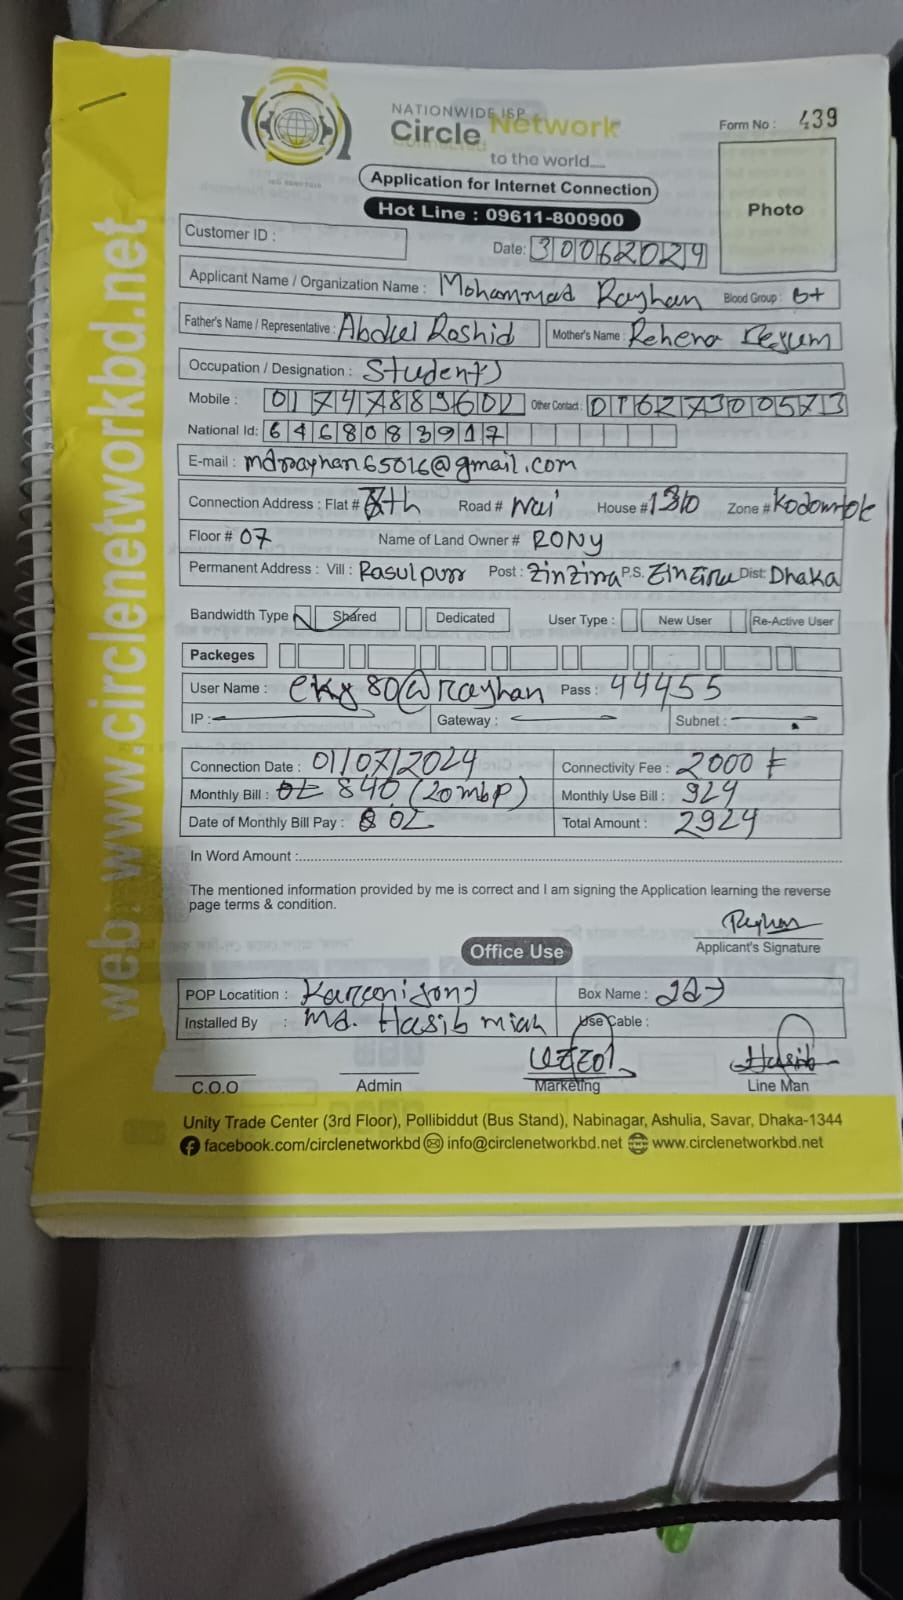 NATIONWIDE ISP
Circle Network
to the world....
Form No : 439
Application for Internet Connection
Hot Line : 09611-800900
Photo
Customer ID :
Date: 30062024
Applicant Name / Organization Name : Mohammad Rayhan Blood Group : B+
Father's Name / Representative : Abdul Roshid Mother's Name : Rehena Begum
Occupation / Designation : Student
Mobile : 01747889602 Other Contact : 01627300573
National Id: 6468083917
E-mail : mdrayhan65016@gmail.com
Connection Address : Flat # 8th Road # Nai House # 1310 Zone # Kodomtole
Floor # 07 Name of Land Owner # RONY
Permanent Address : Vill : Rasulpur Post : Zinzira P.S. Zinzira Dist: Dhaka
Bandwidth Type Shared Dedicated User Type : New User Re-Active User
Packeges
User Name : Pass : 44455
IP : Gateway : Subnet :
Connection Date : 01/07/2024 Connectivity Fee : 2000
Monthly Bill : 840 (20mbp) Monthly Use Bill : 924
Date of Monthly Bill Pay : 02 Total Amount : 2924
In Word Amount :
The mentioned information provided by me is correct and I am signing the Application learning the reverse
page terms & condition.
Rayhan
Applicant's Signature
Office Use
POP Locatition : Box Name :
Installed By : Md. Hasib miah Use Cable :
Hasib
C.O.O Admin Marketing Line Man
Unity Trade Center (3rd Floor), Pollibiddut (Bus Stand), Nabinagar, Ashulia, Savar, Dhaka-1344
facebook.com/circlenetworkbd info@circlenetworkbd.net www.circlenetworkbd.net
web: www.circlenetworkbd.net